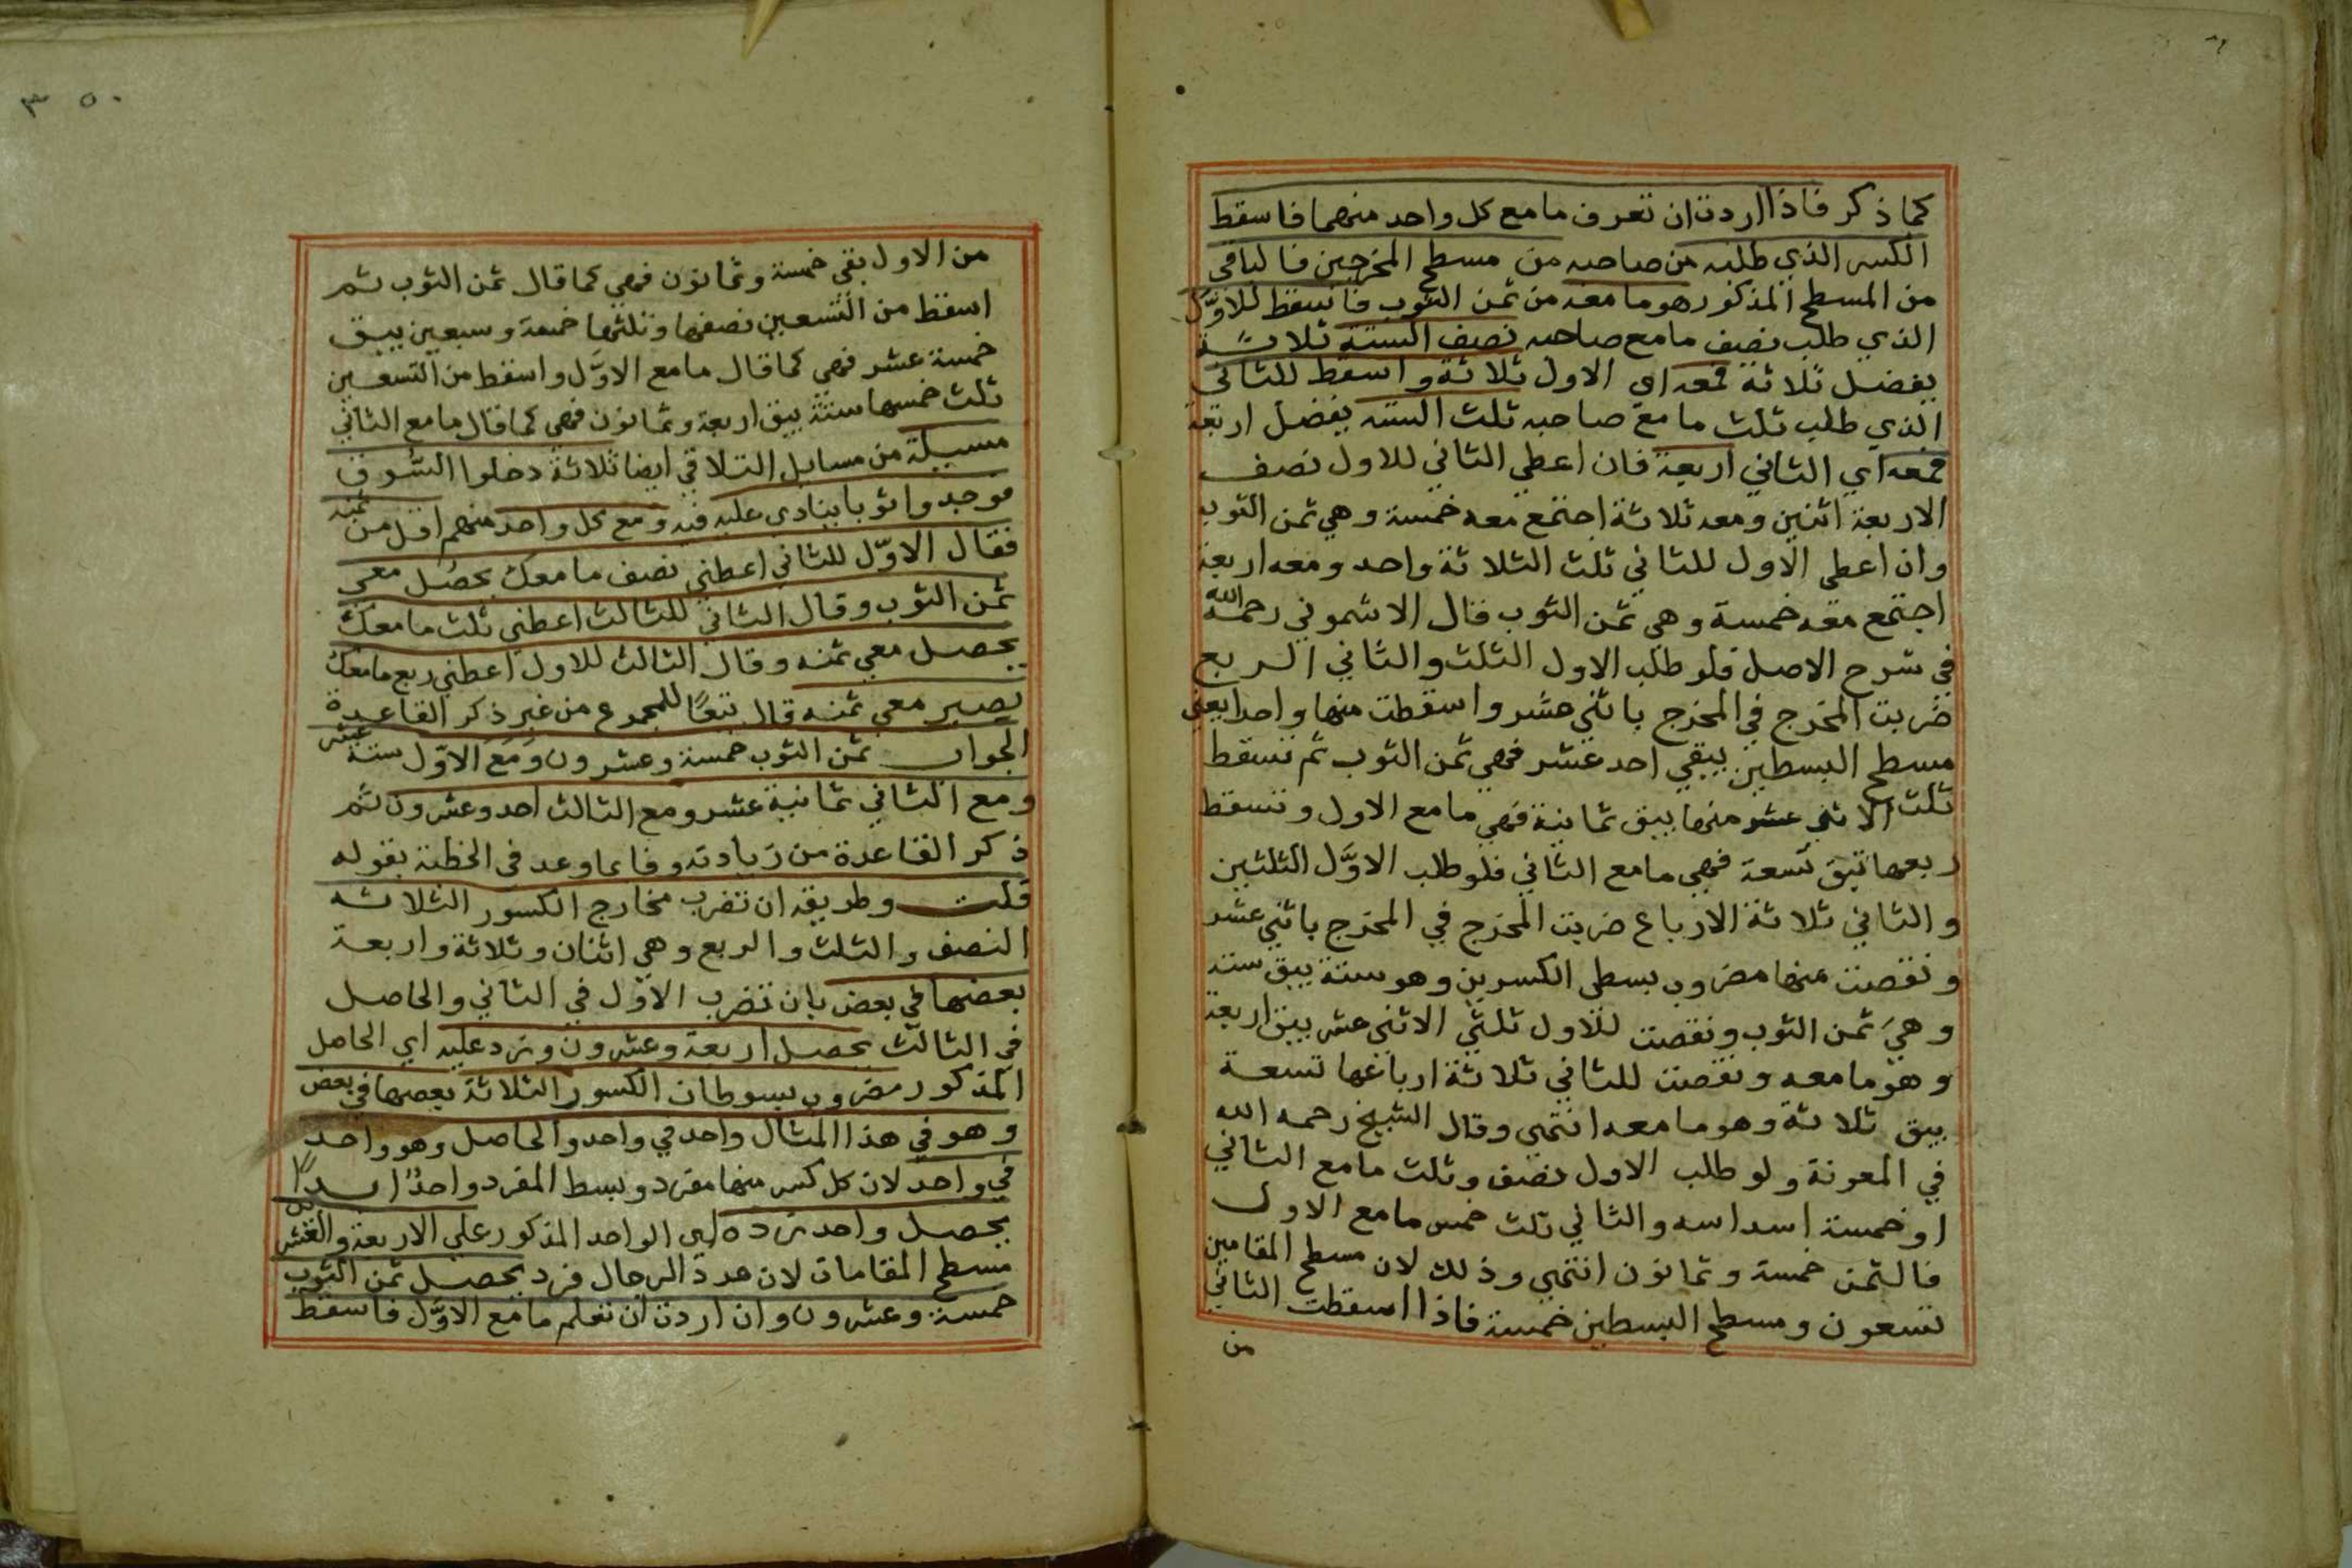 كما ذكر فاذا اردت ان تعرف ما مع كل واحد منهما فاسقط
الكسر الذي طلبه من صاحبه من مسطح المخرجين فالباقي
من المسطح المذكور هو ما معه من ثمن الثوب فاسقط للاوّل
الذي طلب نصف ما مع صاحبه نصف الستة ثلاثة
يفضل ثلاثة فمعه اي الاول ثلاثة واسقط للثاني
الذي طلب ثلث ما مع صاحبه ثلث الستة يفضل اربعة
فمعه اي الثاني اربعة فان اعطي الثاني للاول نصف
الاربعة اثنين ومعه ثلاثة اجتمع معه خمسة وهي ثمن الثوب
وان اعطى الاول للثاني ثلث الثلاثة واحد ومعه اربعة
اجتمع معه خمسة وهي ثمن الثوب قال الاشموني رحمه الله
في شرح الاصل فلو طلب الاول الثلث والثاني الربع
ضربت المخرج في المخرج باثني عشر واسقطت منها واحدا يعني
مسطح البسطين يبقي احد عشر فهي ثمن الثوب ثم تسقط
ثلث الاثني عشر منها يبق ثمانية فهي ما مع الاول وتسقط
ربعها تبق تسعة فهي ما مع الثاني فلو طلب الاوَّل الثلثين
والثاني ثلاثة الارباع ضربت المخرج في المخرج باثني عشر
ونقصت منها مضروب بسطي الكسرين وهو ستة يبق ستة
وهيَ ثمن الثوب ونقصت للاول ثلثي الاثني عشر يبق اربعة
وهو ما معه ونقصت للثاني ثلاثة ارباعها تسعة
يبق ثلاثة وهو ما معه انتهى وقال الشيخ رحمه الله
في المعونة ولو طلب الاول نصف وثلث ما مع الثاني
او خمسة اسداسه والثاني ثلث خمس ما مع الاول
فالثمن خمسة وثمانون انتهى وذلك لان مسطح المقامين
تسعون ومسطح البسطين خمسة فاذا اسقطت الثاني
من
٣٥٠
من الاول بقي خمسة وثمانون فهي كما قال ثمن الثوب ثم
اسقط من التسعين نصفها وثلثها خمسة وسبعين يبق
خمسة عشر فهي كما قال ما مع الاوَّل واسقط من التسعين
ثلث خمسها ستة يبق اربعة وثمانون فهي كما قال ما مع الثاني
مسيلة من مسايل التلاقي ايضا ثلاثة دخلوا السُّوق
فوجدوا ثوبا ينادى عليه فيه ومع كل واحد منهم اقل من ثمنه
فقال الاوّل للثاني اعطني نصف ما معك يحصُل معي
ثمن الثوب وقال الثاني للثالث اعطني ثلث ما معك
يحصل معي ثمنه وقال الثالث للاول اعطني ربع ما معك
يصير معي ثمنه قال تبعًا للمجموع من غير ذكر القاعدة
الجواب ثمن الثوب خمسة وعشرون ومَعَ الاوّل ستة عشر
ومع الثاني ثمانية عشر ومع الثالث احد وعشرون ثم
ذكر القاعدة من زيادته وفا بما وعد في الخطبة بقوله
قلت وطريقه ان تضرب مخارج الكسور الثلاثه
النصف والثلث والربع وهي اثنان وثلاثة واربعة
بعضها في بعض بان تضرب الاوّل في الثاني والحاصل
في الثالث يحصل اربعة وعشرون وتزد عليه اي الحاصل
المذكور مضروب بسوطات الكسور الثلاثة بعضها في بعض
وهو في هذا المثال واحد في واحد والحاصل وهو واحد
في واحد لان كل كسر منها مفرد وبسط المفرد واحدٌ ابدًا
يحصل واحد تزده اي الواحد المذكور على الاربعة والعشرين
مسطح المقامات لان عدة الرجال فرد يحصل ثمن الثوب
خمسة وعشرون وان اردت ان تعلم ما مع الاوَّل فاسقط